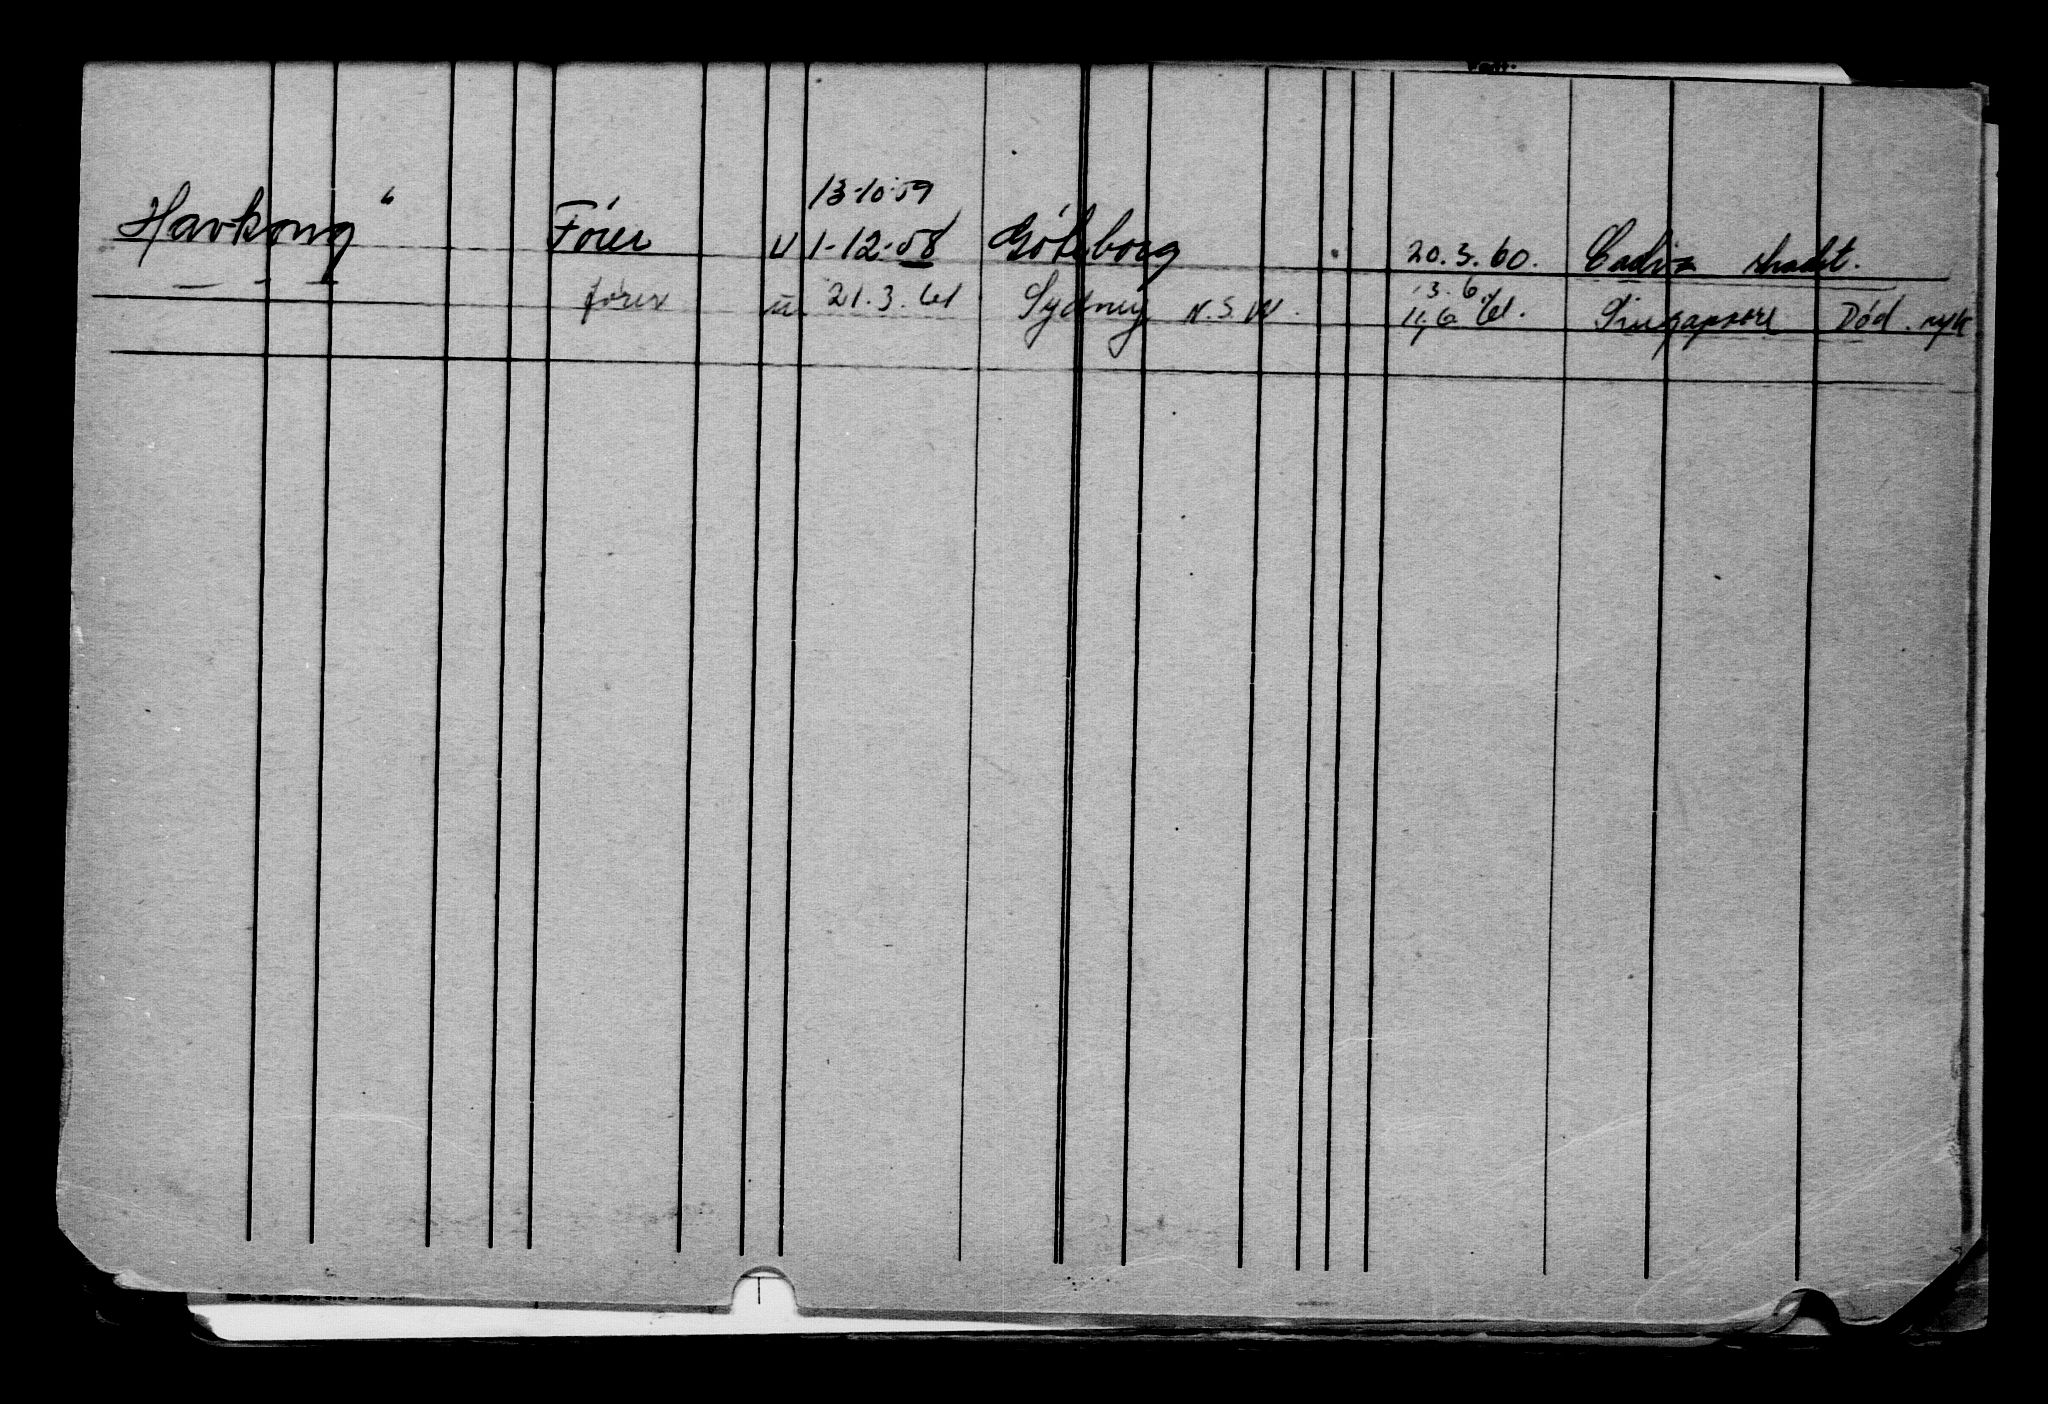 13-10-59
Havkong" Förer u 1-12-58 Göteborg 20.3.60. Cadiz
— " — förer u 21.3.61 Sydney N.S.W. 11.6.61. Singapore Död.
13.6